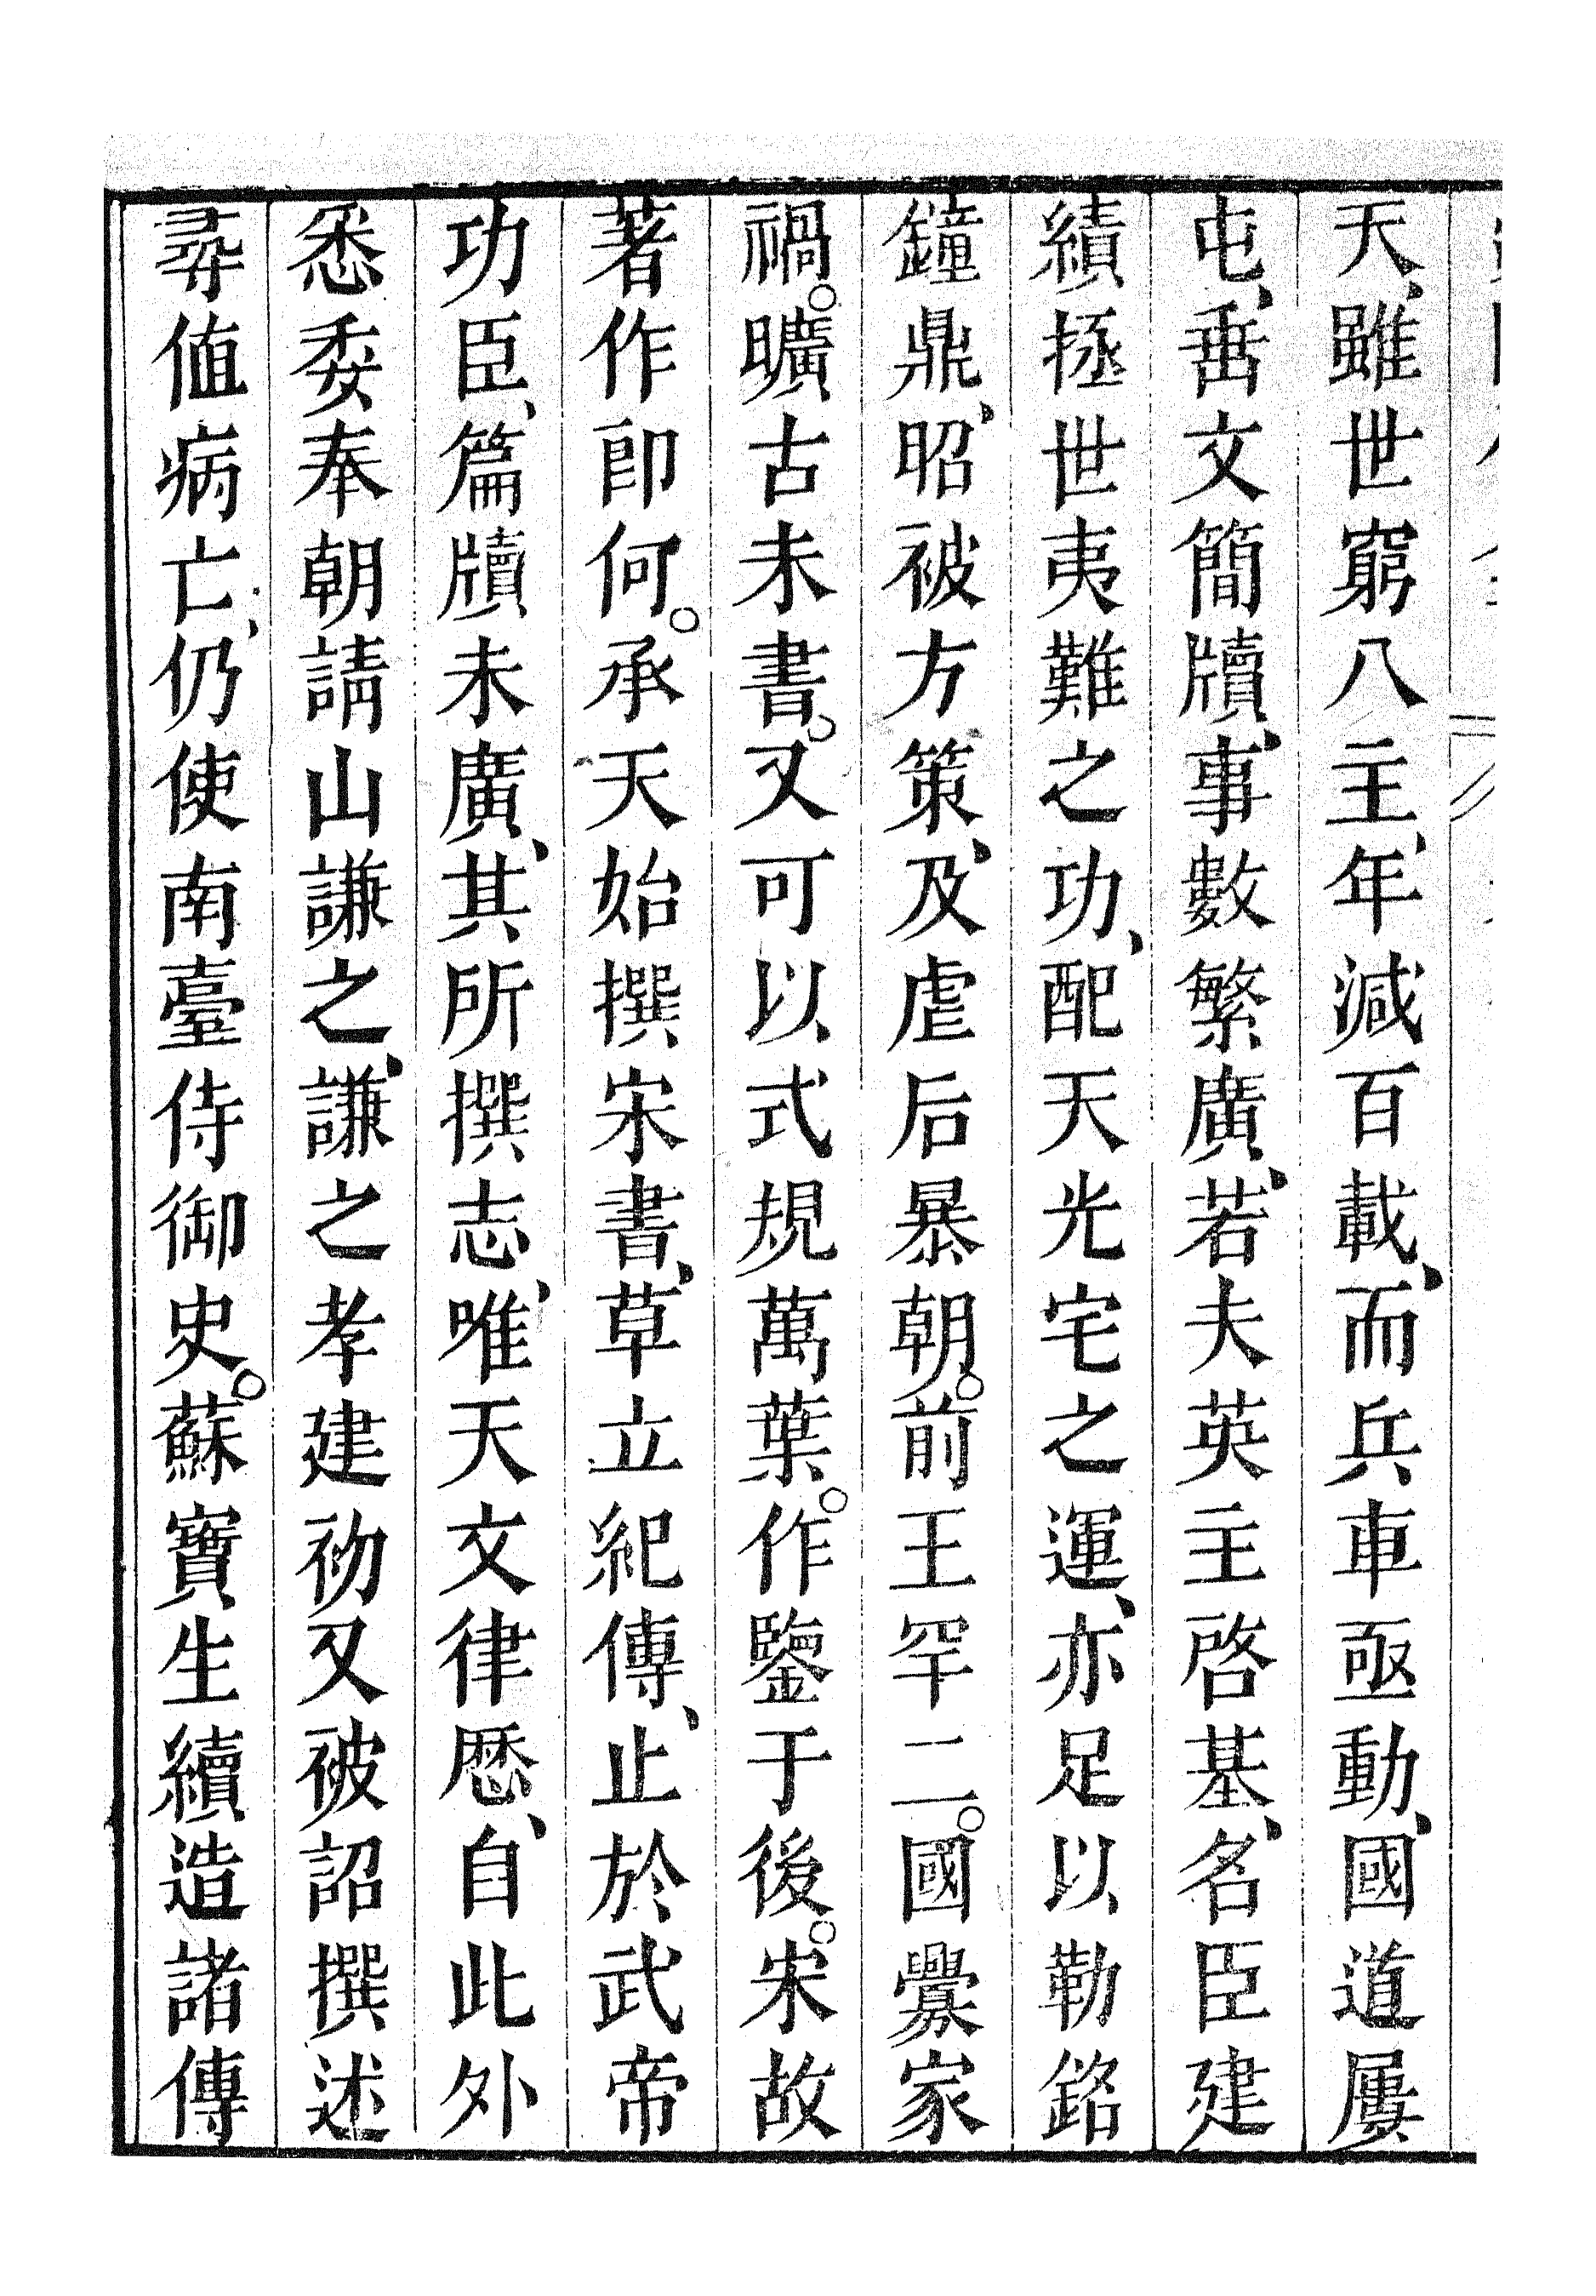 天、雖世窮八主、年減百載、而兵車亟動、國道屢
屯、垂文簡牘、事數繁廣、若夫英主啓基、名臣建
績拯世夷難之功、配天光宅之運、亦足以勒銘
鐘鼎、昭被方策、及虐后暴朝。前王罕二。國釁家
禍。曠古未書。又可以式規萬葉。作鑒于後。宋故
著作郎何。承天始撰宋書、草立紀傳、止於武帝
功臣、篇牘未廣、其所撰志、唯天文律曆、自此外
悉委奉朝請山謙之、謙之孝建初又被詔撰述
尋值病亡、仍使南臺侍御史。蘇寶生續造諸傳